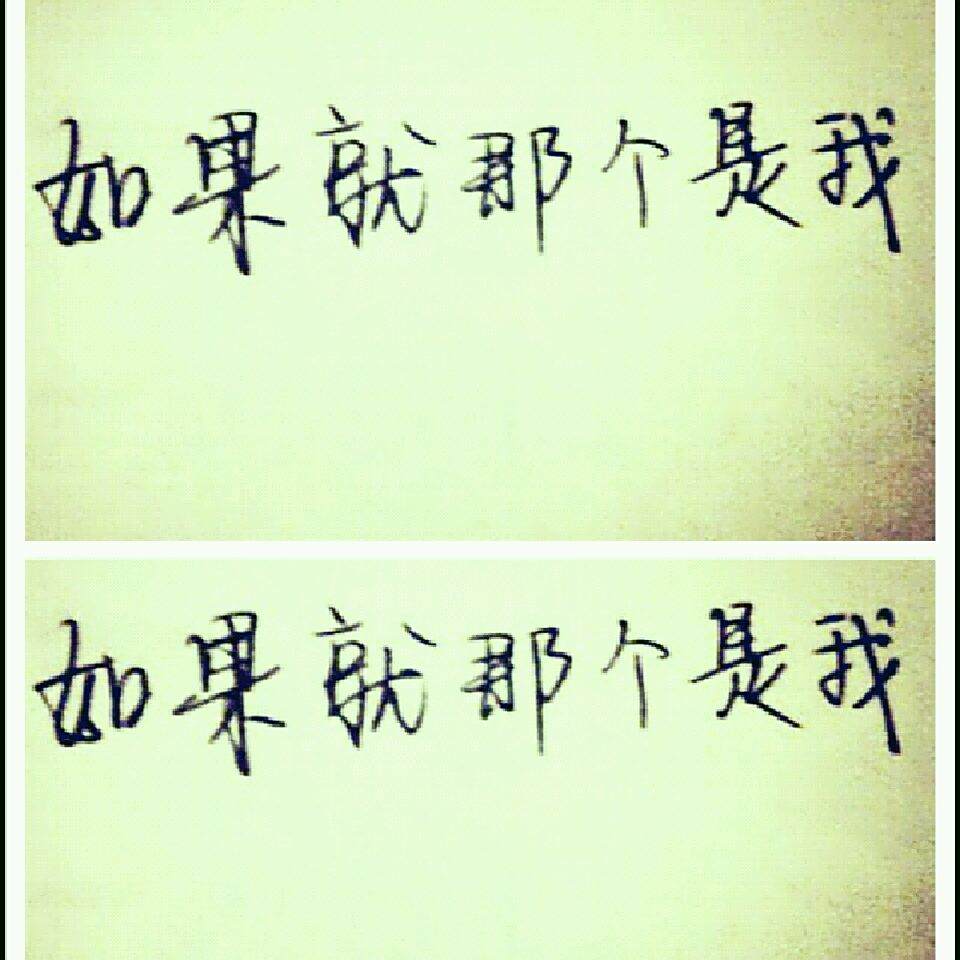 如果就那个是我
如果就那个是我